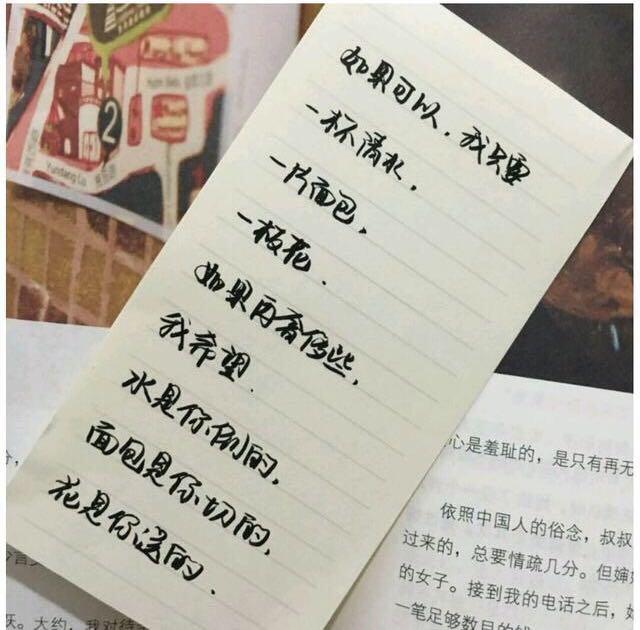 2
Yundang Lu
如果可以，我只要
一杯清水，
一片面包，
一枝花．
如果再奢侈些，
我希望．
水是你倒的，
面包是你切的，
花是你送的．
心是羞耻的，是只有再无
依照中国人的俗念，叔叔
过来的，总要情疏几分。但婶
的女子。接到我的电话之后，
一笔足够数目的
跃。大约，我对待